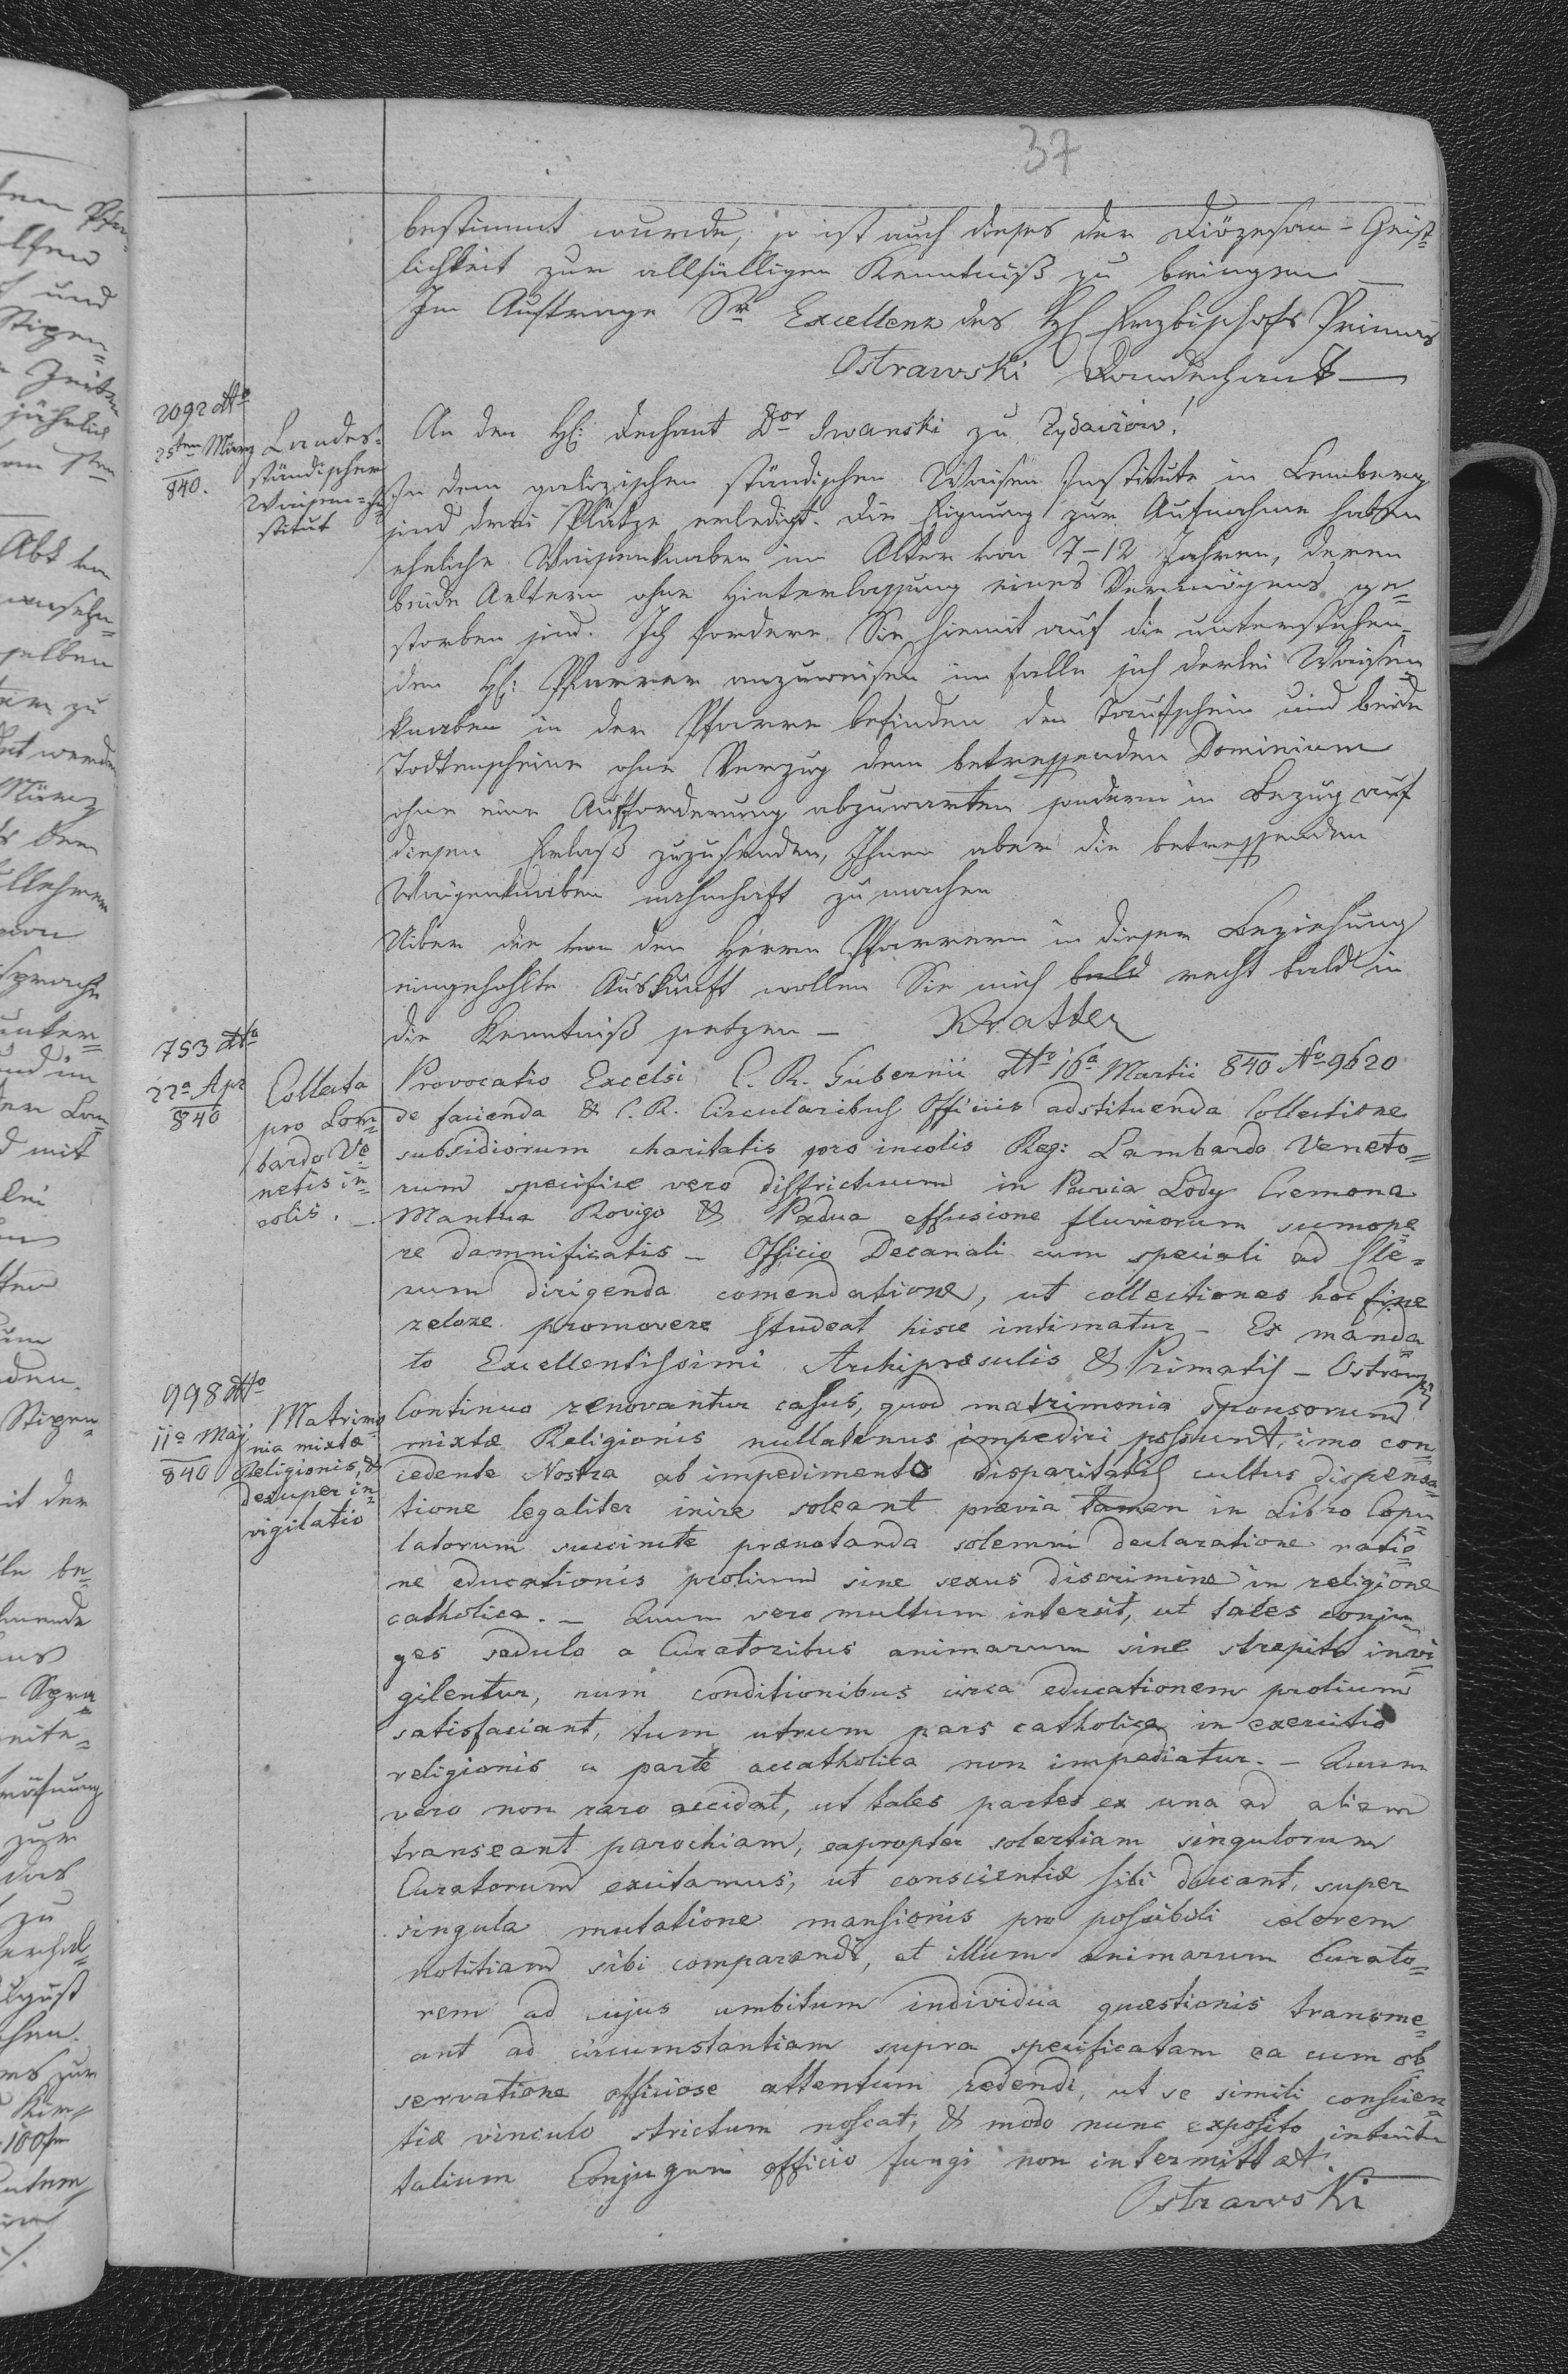 37
bestimmt wurde, so ist auch dieses der Diözesan-Geist=
lichkeit zur allfälligen Kenntniß zu bringen —
Im Auftrage Sr Excellenz des H Erzbischofs Primas
Ostrawski Domdechant —
2092 dtto
25ten März
840.
Landes=
ständischer
Waisen=In=
stitut
An den H: Dechant Dor Iwanski zu Zydaczów!
In dem galizischen ständischen Waisen Institute in Lemberg
sind drei Plätze erledigt. Die Eignung zur Aufnahme haben
eheliche Waisenknaben im Alter von 7-12 Jahren, deren
beide Aeltern ohne Hinterlassung eines Vermögens ge=
storben sind. Ich fordere Sie hiemit auf die unterstehen=
den H: Pfarrer anzuweisen im Falle sich derlei Waisen
knaben in der Pfarre befinden den Taufschein und beide
Todtenscheine ohne Verzug dem betreffenden Dominium
ohne eine Aufforderung abzuwarten sondern in Bezug auf
diesen Erlaß zuzusenden, Ihnen aber die betreffenden
Waisenknaben nahmhaft zu machen
Uiber die von den Herrn Pfarrern in dieser Beziehung
eingehohlte Auskunft wollen Sie mich bald recht bald in
die Kenntniß setzen — Kratter
753 dto
22a Apr
840
Collecta
pro Lom=
bardo Ve=
netis in=
colis. —
Provocatio Excelsi C. R. Gubernii dto 16a Martii 840 No 9620
de facienda & C. R. Circularibus Officiis adstituenda Collectione
subsidiorum charitatis pro incolis Reg: Lambardo Veneto=
rum specifice vero districtuum in Pavia Lody Cremona
Mantua Rovigo & Padua effusione fluviorum sumope=
re damnificatis — Officio Decanali cum speciali ad Cle=
rum dirigenda comendatione, ut collectiones hoc fine
zelose promovere studeat hisce intimatur — Ex manda=
to Excellentissimi Archipræsulis & Primatis — Ostrawski
998 dtto
11a Maj
840
Matrimo=
nia mixtæ
Religionis, &
desuper in=
vigilatio
Continuo renovantur casus, quod matrimonia Sponsorum
mixtæ Religionis nullatenus impediri possunt, imo con=
cedente Nostra ab impedimento disparitatis cultus dispensa=
tione legaliter inire soleant prævia tamen in Libro Copu=
latorum succincte prænotanda solemni declaratione ratio=
ne educationis prolium sine sexus discrimine in religione
catholica. — Quum vero multum intersit, ut tales conju=
ges sedulo a Curatoribus animarum sine strepitu invi=
gilentur, num conditionibus circa educationem prolium
satisfaciant, tum utrum pars catholica in exercitio
religionis a parte accatholica non impediatur. — Quum
vero non raro accidat, ut tales partes ex una ad aliam
transeant parochiam, eapropter solertiam singulorum
Curatorum excitamus, ut conscientiæ sibi ducant, super
singula mutatione mansionis pro possibili celerem
notitiam sibi comparandi, et illum animarum Curato=
rem ad cujus ambitum individua quæstionis transme=
ant ad circumstantiam supra specificatam ea cum ob=
servatione officiose attentum redendi, ut se simili conscien=
tiæ vinculo strictum noscat, & modo nunc exposito intuitu
talium Conjugum officio fungi non intermittat.
Ostrawski